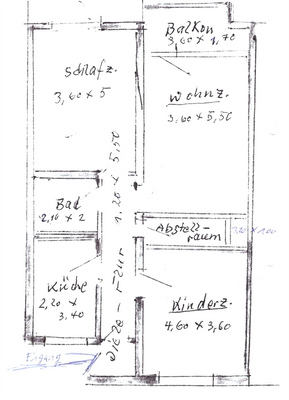 Balkon
3,60 x 1,70
Schlafz.
3,60 x 5
Wohnz.
3,60 x 5,50
Bad
2,20 x 2
Diele - Flur 1,20 x 5,50
Abstell-
raum
Küche
2,20 x
3,40
Kinderz.
4,60 x 3,60